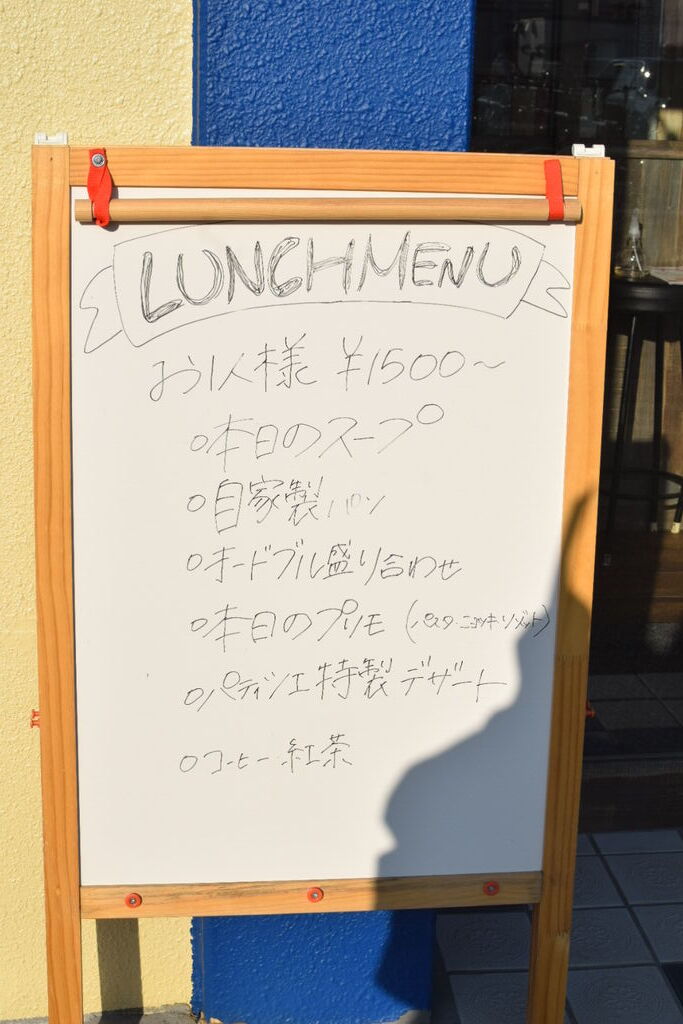 LUNCH MENU
お1人様 ¥1500〜
○本日のスープ
○自家製パン
○オードブル盛り合わせ
○本日のプリモ (パスタ・ニョッキ・リゾット)
○パティシエ特製デザート
○コーヒー 紅茶